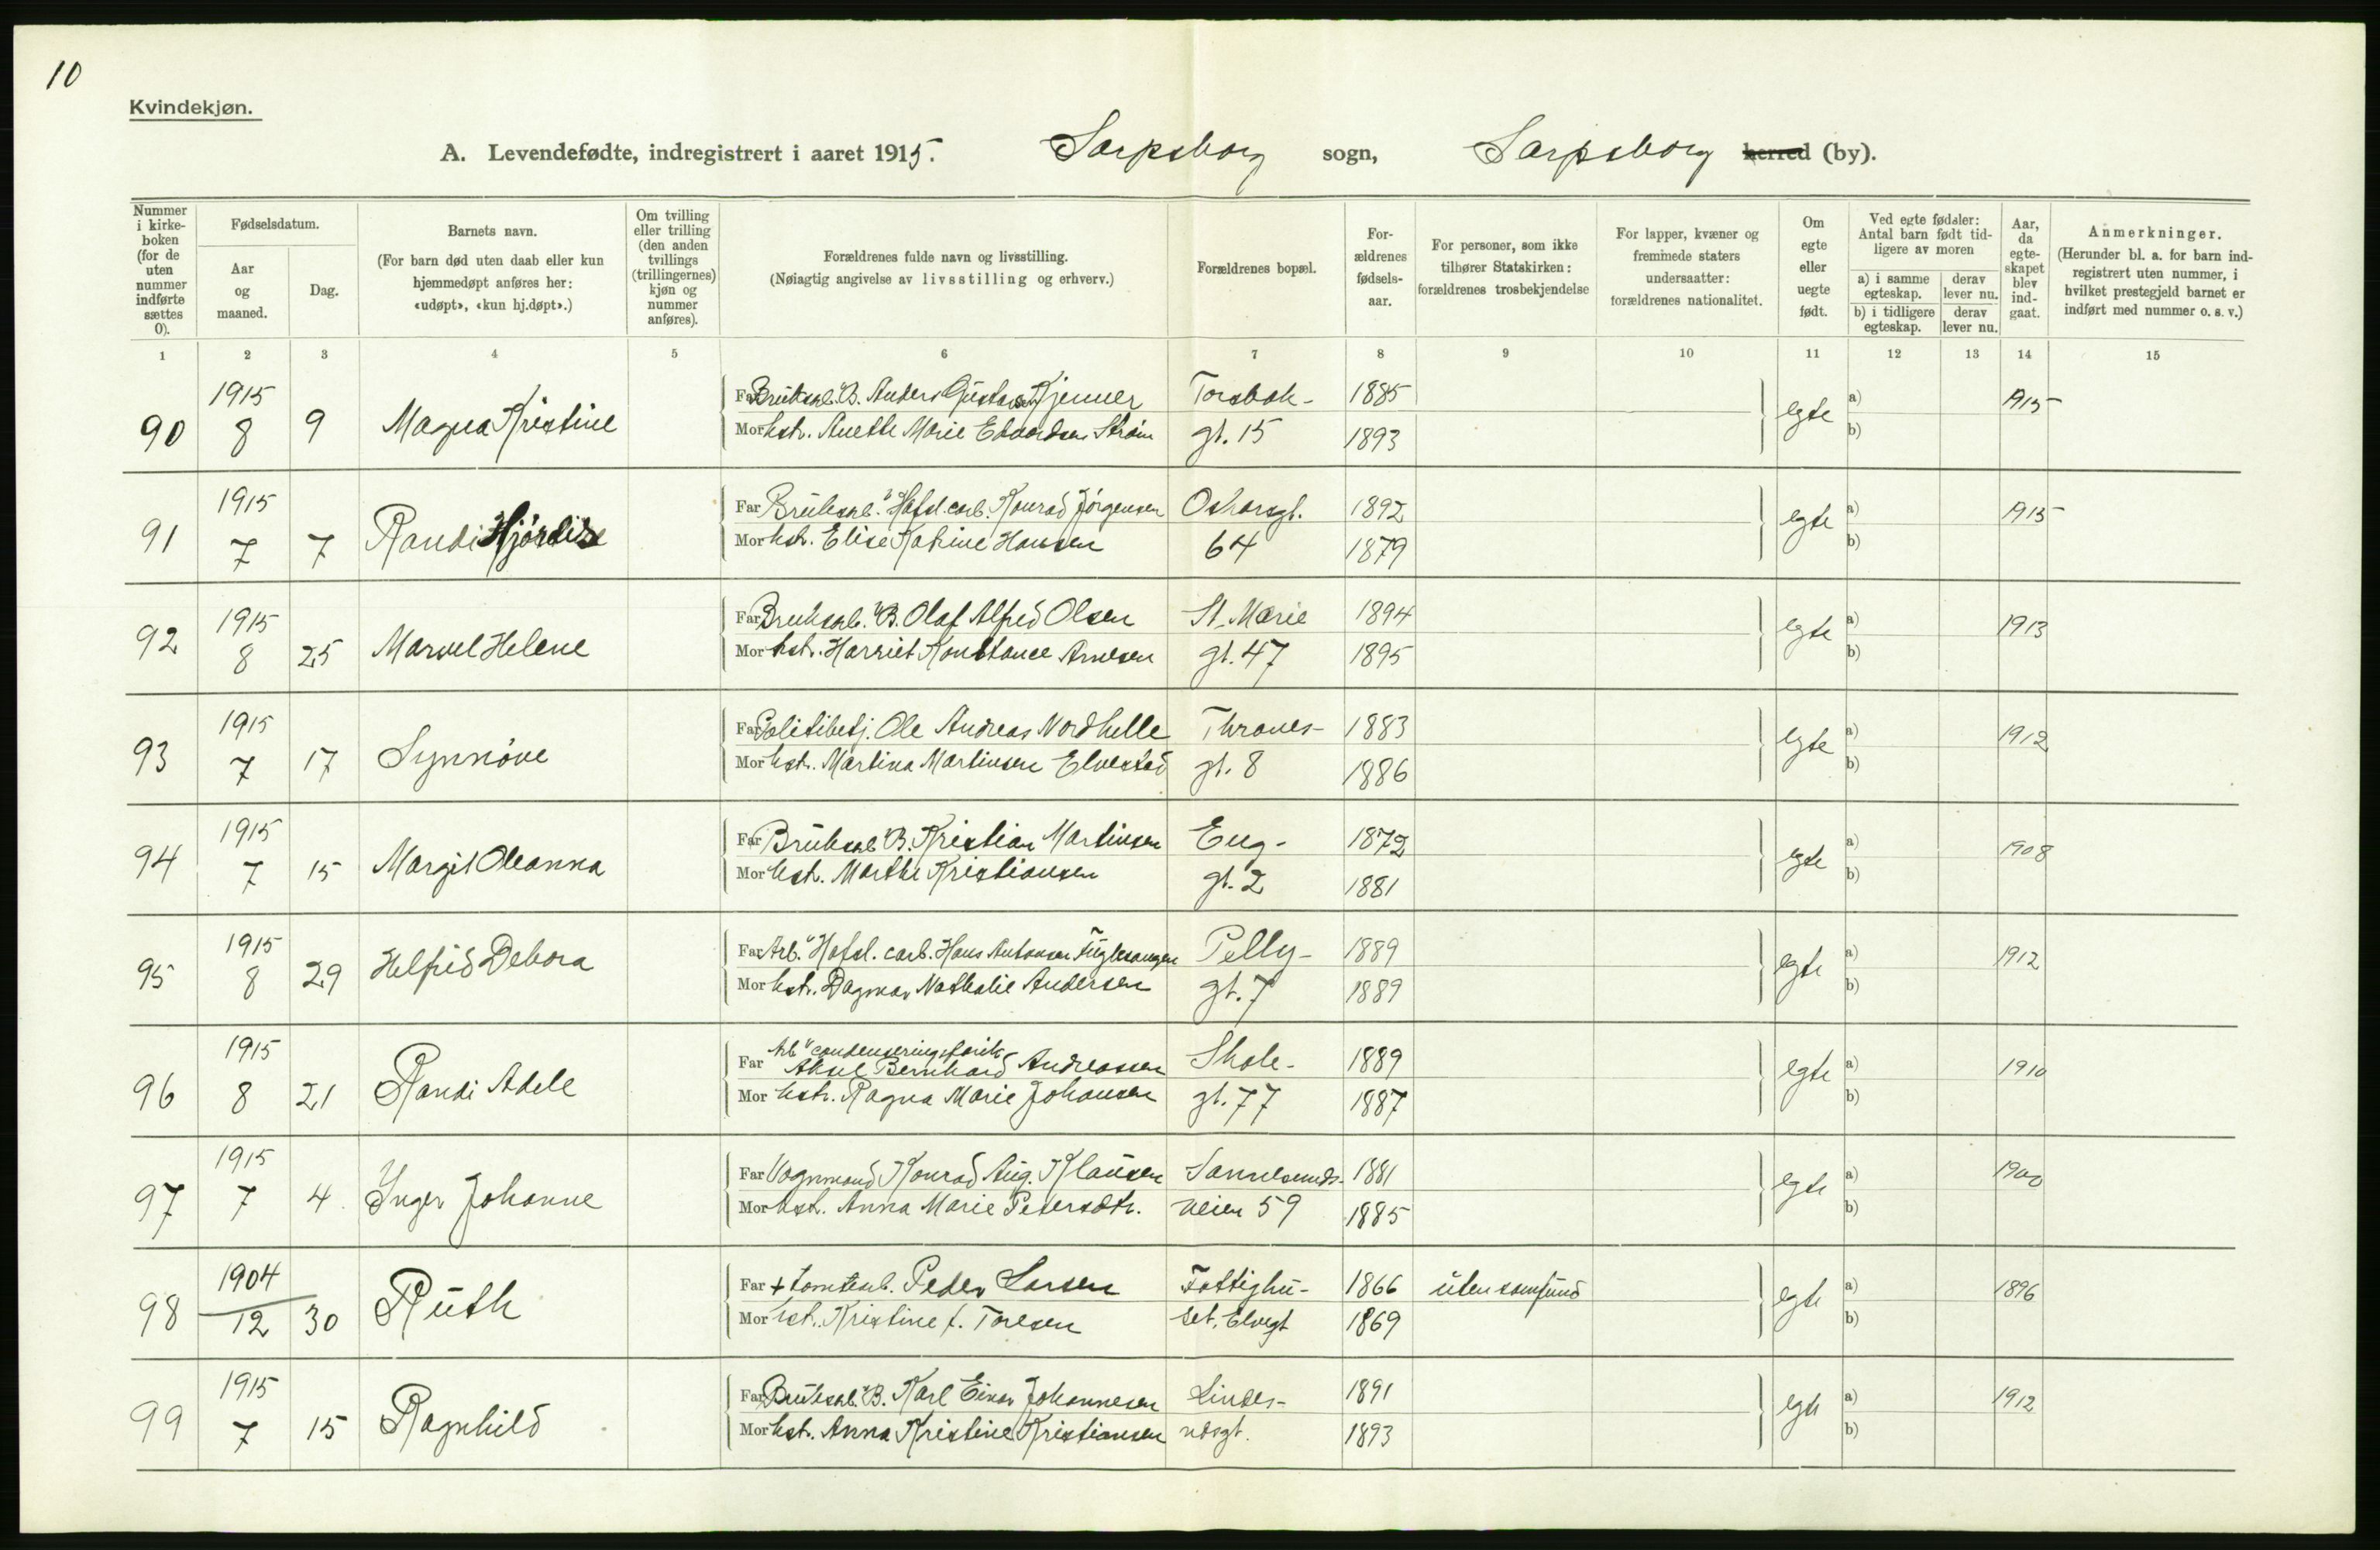 10
Kvindekjøn.
A. Levendefødte, indregistrert i aaret 1915. Sarpsborg sogn, Sarpsborg herred (by).
Nummer i kirke-boken (for de uten nummer indførte sættes 0).
Fødselsdatum.
Aar og maaned.
Dag.
Barnets navn.
(For barn død uten daab eller kun hjemmedøpt anføres her: «udøpt», «kun hj.døpt».)
Om tvilling eller trilling (den anden tvillings (trillingernes) kjøn og nummer anføres).
Forældrenes fulde navn og livsstilling.
(Nøiagtig angivelse av livsstilling og erhverv.)
Forældrenes bopæl.
For-ældrenes fødsels-aar.
For personer, som ikke tilhører Statskirken: forældrenes trosbekjendelse
For lapper, kvæner og fremmede staters undersaatter: forældrenes nationalitet.
Om egte eller uegte født.
Ved egte fødsler: Antal barn født tid-ligere av moren
a) i samme egteskap. derav lever nu.
b) i tidligere egteskap. derav lever nu.
Aar, da egte-skapet blev ind-gaat.
Anmerkninger.
(Herunder bl. a. for barn ind-registrert uten nummer, i hvilket prestegjeld barnet er indført med nummer o. s. v.)
1 2 3 4 5 6 7 8 9 10 11 12 13 14 15
90 1915 8 9 Magna Kristine
Far Bruksarb. B. Anders Gustav Kjenner Torsbek- 1885 egte a) 1915
Mor hst. Anette Marie Edvardsen Strøm gt. 15 1893 b)
91 1915 7 7 Randi Hjördis
Far Bruksarb. "Hafsl. carb. Konrad Jørgensen Oskarsgt. 1892 egte a) 1915
Mor hst. Elise Katrine Hansen 64 1879 b)
92 1915 8 25 Marvel Helene
Far Bruksarb. "B. Olaf Alfred Olsen St. Marie 1894 egte a) 1913
Mor hst. Harriet Konstance Arnesen gt. 47 1895 b)
93 1915 7 17 Synnöve
Far Politibetj. Ole Andreas Nordhelle Thranes- 1883 egte a) 1912
Mor hst. Martina Martinsen Elvestad gt. 8 1886 b)
94 1915 7 15 Margit Oleanna
Far Bruksarb "B. Kristian Martinsen Eng- 1872 egte a) 1908
Mor hst. Marthe Kristiansen gt. 2 1881 b)
95 1915 8 29 Helfrid Debora
Far Arb. "Hafsl. carb. Hans Antonsen Fuglesangen Pelly- 1889 egte a) 1912
Mor hst. Dagmar Nathalie Andersen gt. 7 1889 b)
96 1915 8 21 Randi Adele
Arb " condenseringsfabrik
Far Aksel Bernhard Andreassen Skole- 1889 egte a) 1910
Mor hst. Ragna Marie Johansen gt. 77 1887 b)
97 1915 7 4 Inger Johanne
Far Vognmand Konrad Aug. Klausen Sannesunds- 1881 egte a) 1900
Mor hst. Anna Marie Petersdtr. veien 59 1885 b)
98 1904 12 30 Ruth
Far + tomtearb. Peder Larsen Fattighu- 1866 uten samfund egte a) 1896
Mor hst. Kristine f. Toresen set, Elvegt 1869 b)
99 1915 7 15 Ragnhild
Far Bruksarb. "B. Karl Einar Johannesen Lindes- 1891 egte a) 1912
Mor hst. Anna Kristine Kristiansen næsgt. 1893 b)